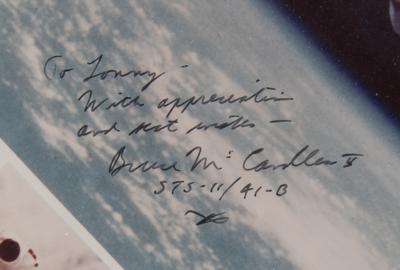 To Lonny -
With appreciation
and best wishes -
Bruce McCandless II
STS-11/41-B